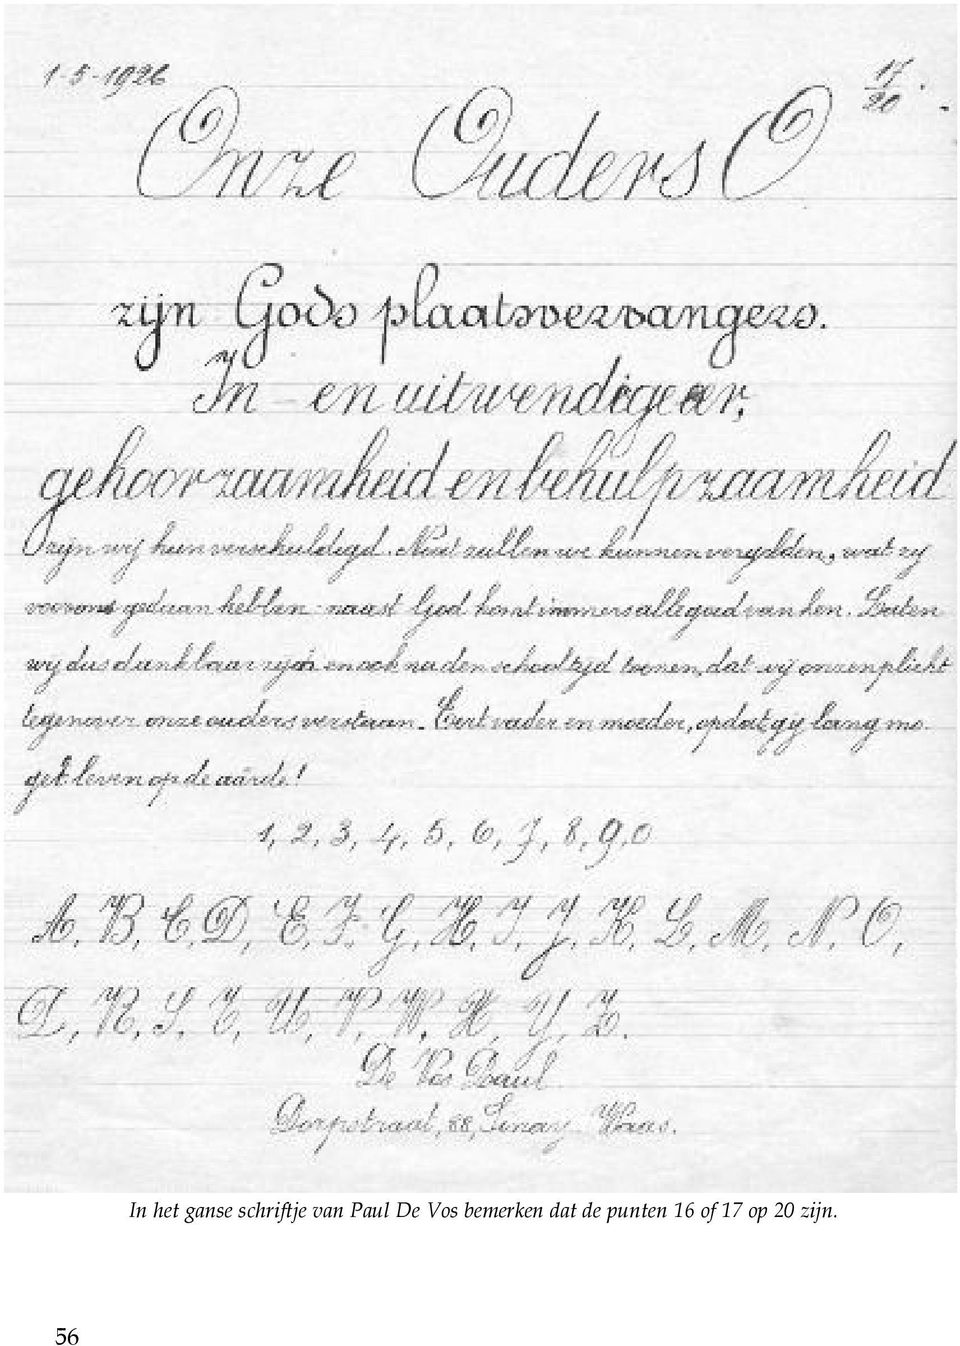 1-5-1926 17/20.
Onze Ouders O
zijn Gods plaatsvervangers.
In- en uitwendige eer,
gehoorzaamheid en behulpzaamheid
zijn wij hun verschuldigd. Nooit zullen we kunnen vergelden, wat zij
voor ons gedaan hebben: naast God komt immers alle goed van hen. Laten
wij dus dankbaar zijn en ook na den schooltijd toonen, dat wij onzen plicht
tegenover onze ouders verstaan. Eert vader en moeder, opdat gij lang mo-
get leven op de aarde!
1, 2, 3, 4, 5, 6, 7, 8, 9, 0
A, B, C, D, E, F, G, H, I, J, K, L, M, N, O,
P, R, S, T, U, V, W, X, Y, Z.
De Vos Paul
Dorpstraat, 88, Sinay Waas.
In het ganse schriftje van Paul De Vos bemerken dat de punten 16 of 17 op 20 zijn.
56